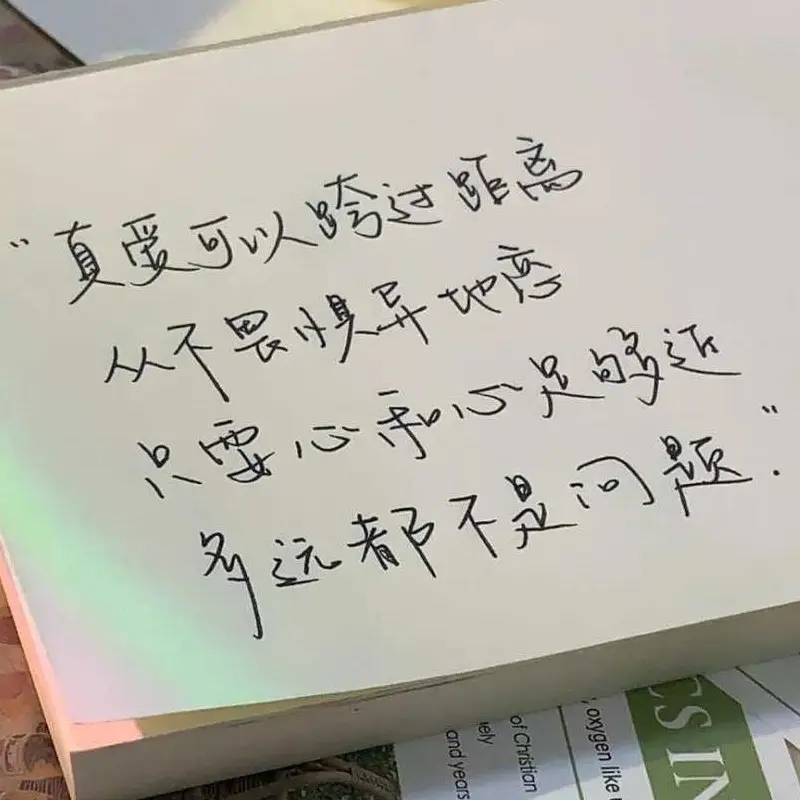 “真爱可以跨过距离
从不畏惧异地恋
只要心和心足够近
多远都不是问题.”
oxygen like
CS IN
of Christian
ely
and years